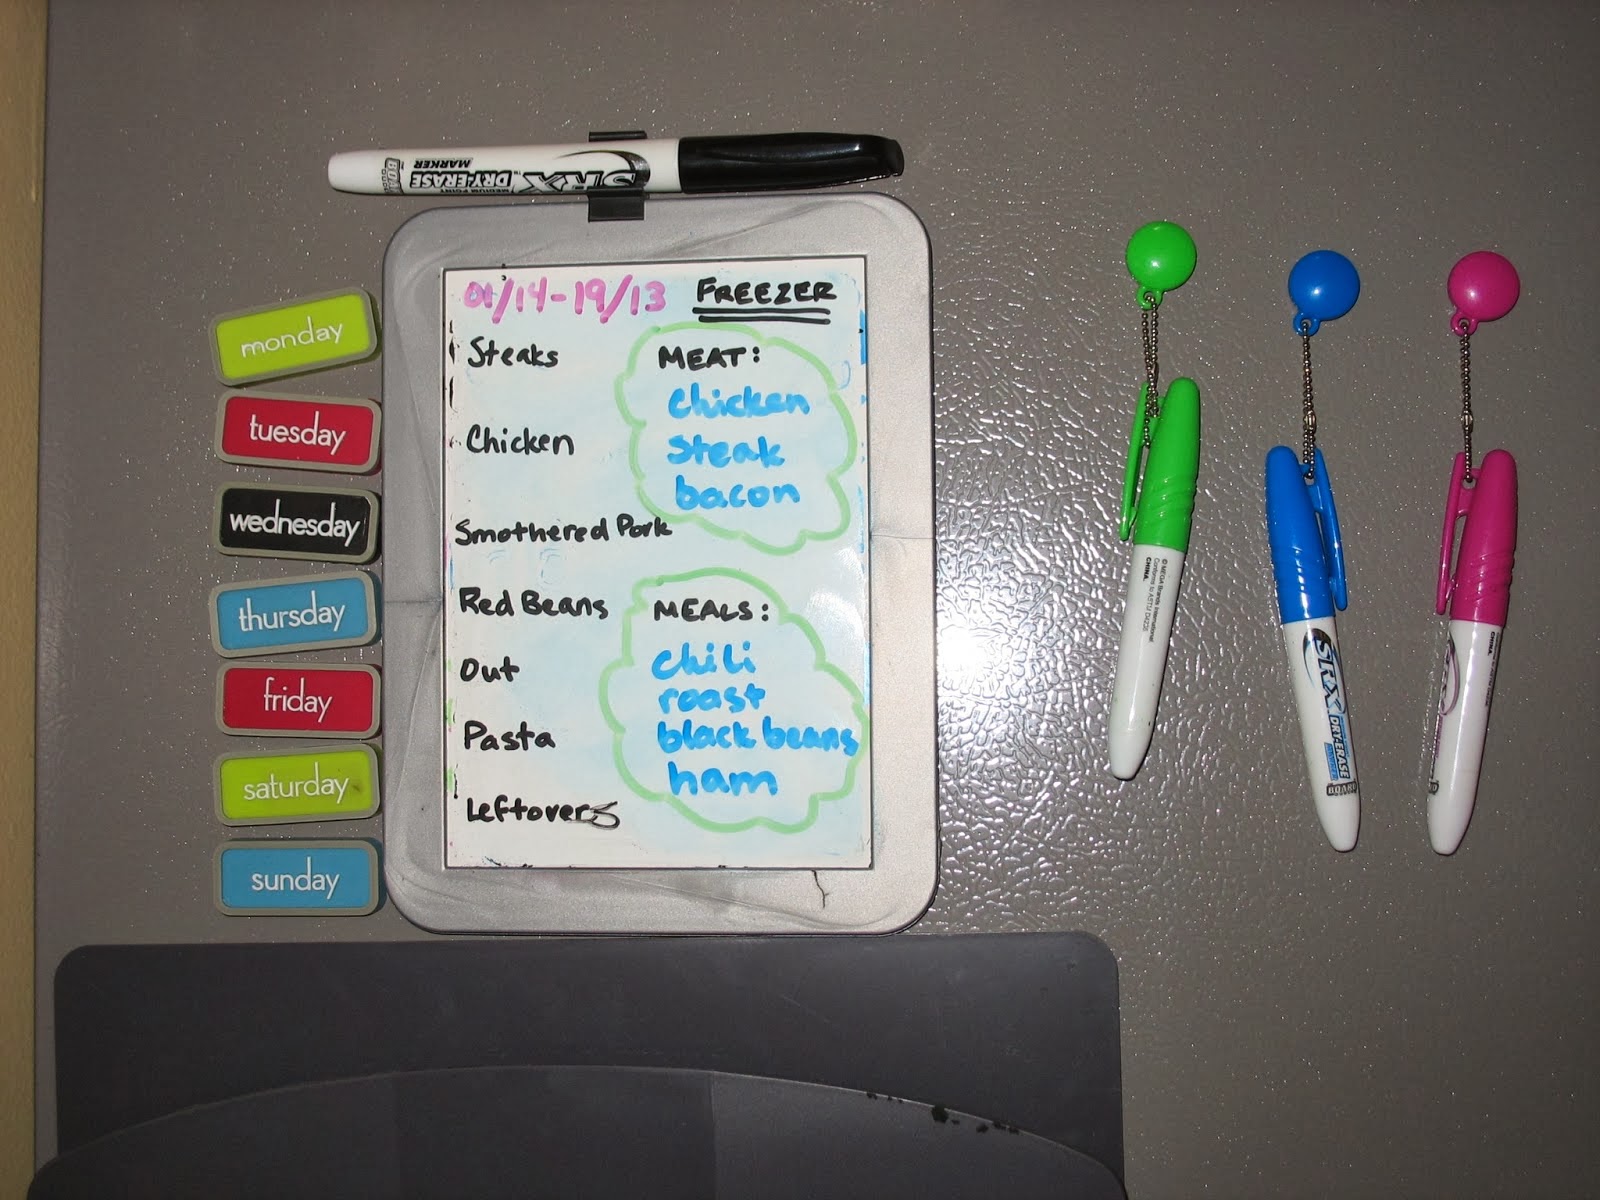 SRX
DRY-ERASE™
MEDIUM POINT
MARKER
01/14-19/13
FREEZER
monday
Steaks
MEAT:
chicken
steak
bacon
tuesday
Chicken
wednesday
Smothered Pork
thursday
Red Beans
MEALS:
chili
roast
black beans
ham
friday
Out
saturday
Pasta
sunday
Leftovers
© MEGA Brands International
CHINA.
SRX
DRY-ERASE
MARKER
BOARD
CHINA.